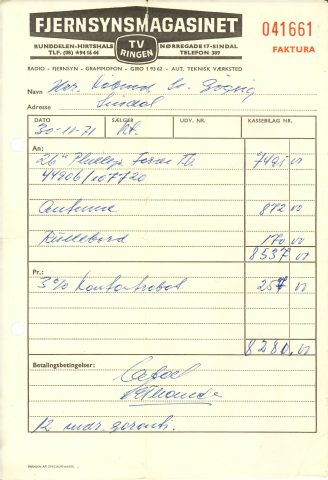 FJERNSYNSMAGASINET
RUNDDELEN-HIRTSHALS TV RINGEN NØRREGADE 17-SINDAL
TLF. (08) 94 18 44 TELEFON 389
RADIO - FJERNSYN - GRAMMOFON - GIRO 19362 - AUT. TEKNISK VÆRKSTED
041661
FAKTURA
Navn Hr.
Adresse Sindal
DATO SÆLGER UDV. NR. KASSEBILAG NR.
30-11-71
An:
26" Philips Farve T.V. 7495 00
44906/107720
Antenne 872 00
Rullebord 170 00
8537 00
Pr.:
3% Kontantrabat 257 00
8280.00
Betalingsbetingelser:
12 mdr. garanti.